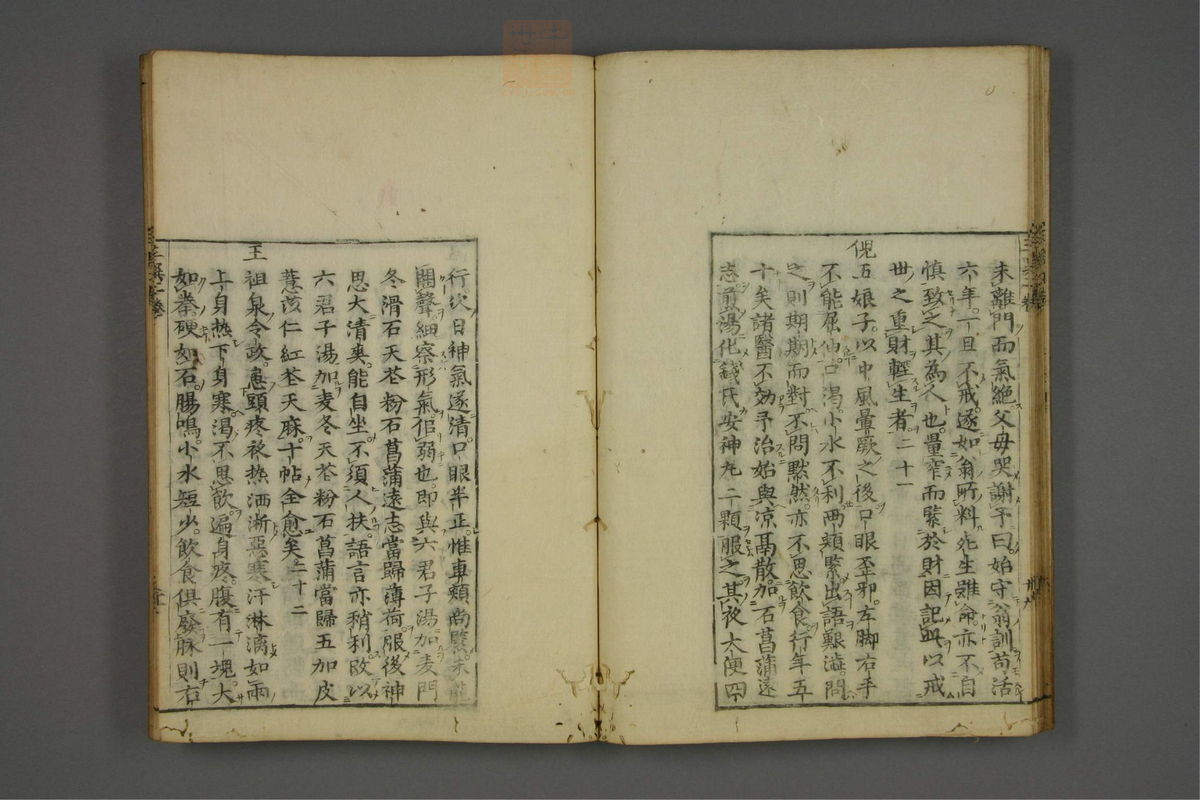 未離門而氣絕父母哭謝予曰始守翁訓苟活
六年一旦不戒遂如翁所料死生雖命亦不自
慎致之其為人也量窄而緊於財因記此以戒
世之重財輕生者二十一
倪五娘子以中風暈厥之後口眼歪邪左脚右手
不能屈伸口渴小水不利兩頰緊出語艱澁問
之則期期而對不問默然亦不思飲食行年五
十矣諸醫不効予治始與凉鬲散加石菖蒲遠
志煎湯化錢氏安神丸二顆服之其夜大便四
行次日神氣遂清口眼半正惟車頰尚緊未
開聲細察形氣倌弱也即與六君子湯加麦門
冬滑石天苍粉石菖蒲遠志當歸薄荷服後神
思大清爽能自坐不須人扶語言亦稍利改以
六君子湯加麦冬天苍粉石菖蒲當歸五加皮
薏苡仁紅苍天麻十帖全愈矣二十二
王祖泉令政患頭疼夜热洒淅惡寒汗淋漓如雨
上身热下身寒渴不思飲遍身疼腹有一塊大
如拳硬如石腸鳴小水短少飲食俱廢脉則右